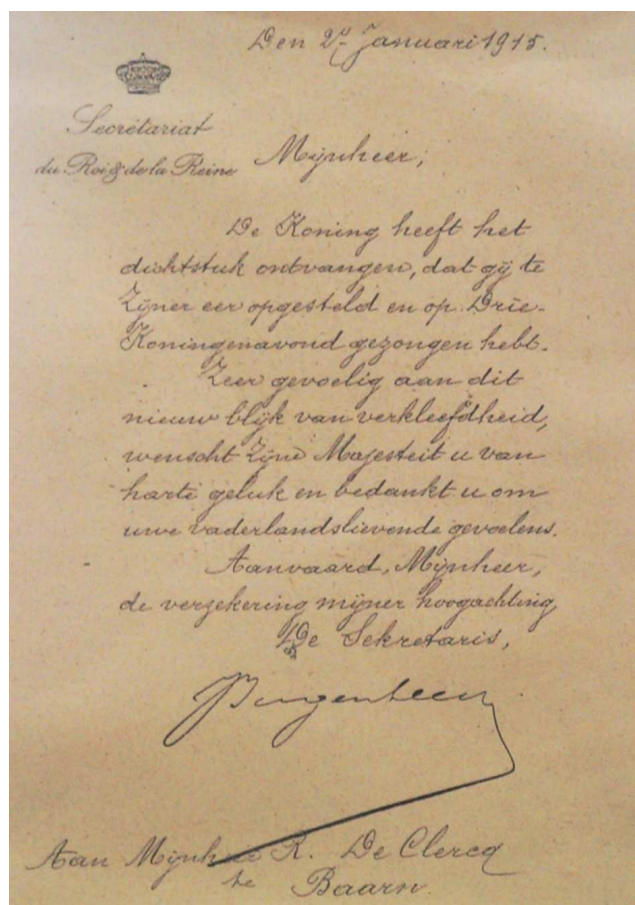 Den 27 Januari 1915.
Secrétariat
du Roi & de la Reine
Mijnheer,
De Koning heeft het
dichtstuk ontvangen, dat gij te
Zijner eer opgesteld en op Drie-
Koningenavond gezongen hebt.
Zeer gevoelig aan dit
nieuw blijk van verkleefdheid,
wenscht Zijne Majesteit u van
harte geluk en bedankt u om
uwe vaderlandslievende gevoelens.
Aanvaard, Mijnheer,
de verzekering mijner hoogachting
De Sekretaris,
Aan Mijnheer R. De Clercq
te Baarn.